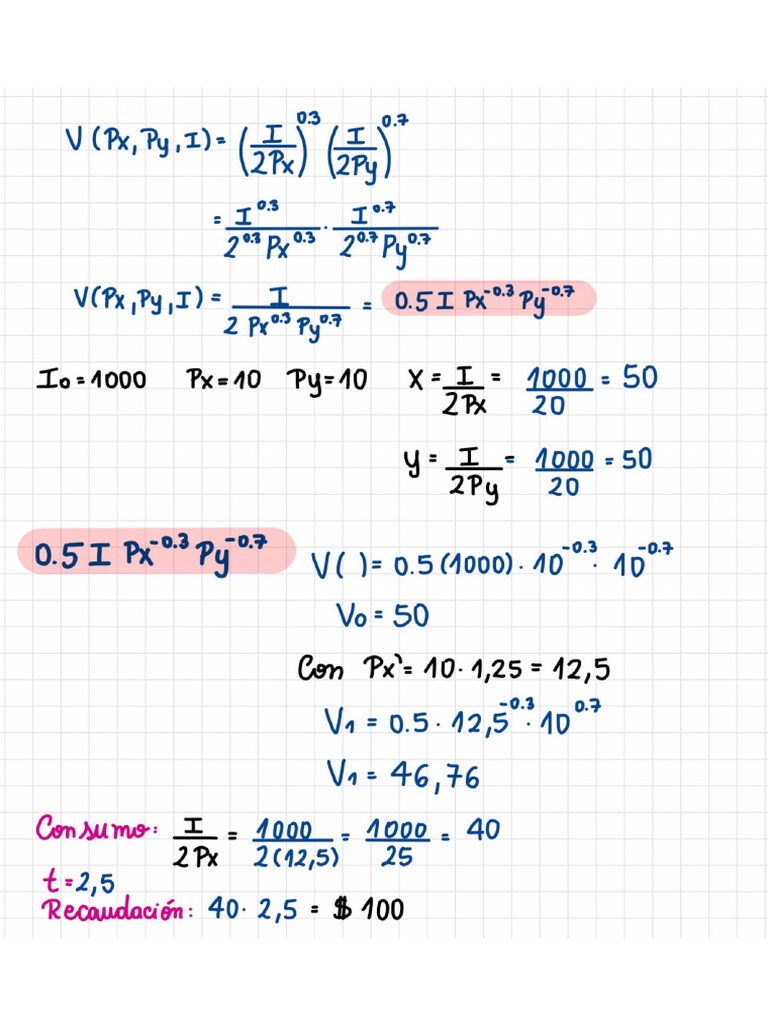 V (Px, Py, I) = (I/2Px)^0.3 (I/2Py)^0.7
= I^0.3/2^0.3 Px^0.3 · I^0.7/2^0.7 Py^0.7
V(Px, Py, I) = I/2 Px^0.3 Py^0.7 = 0.5 I Px^-0.3 Py^-0.7
Io = 1000 Px = 10 Py = 10 X = I/2Px = 1000/20 = 50
y = I/2Py = 1000/20 = 50
0.5 I Px^-0.3 Py^-0.7 V( ) = 0.5 (1000) · 10^-0.3 · 10^-0.7
Vo = 50
Con Px` = 10 · 1,25 = 12,5
V1 = 0.5 · 12,5^-0.3 · 10^0.7
V1 = 46,76
Consumo: I/2Px = 1000/2(12,5) = 1000/25 = 40
t = 2,5
Recaudación: 40 · 2,5 = $ 100